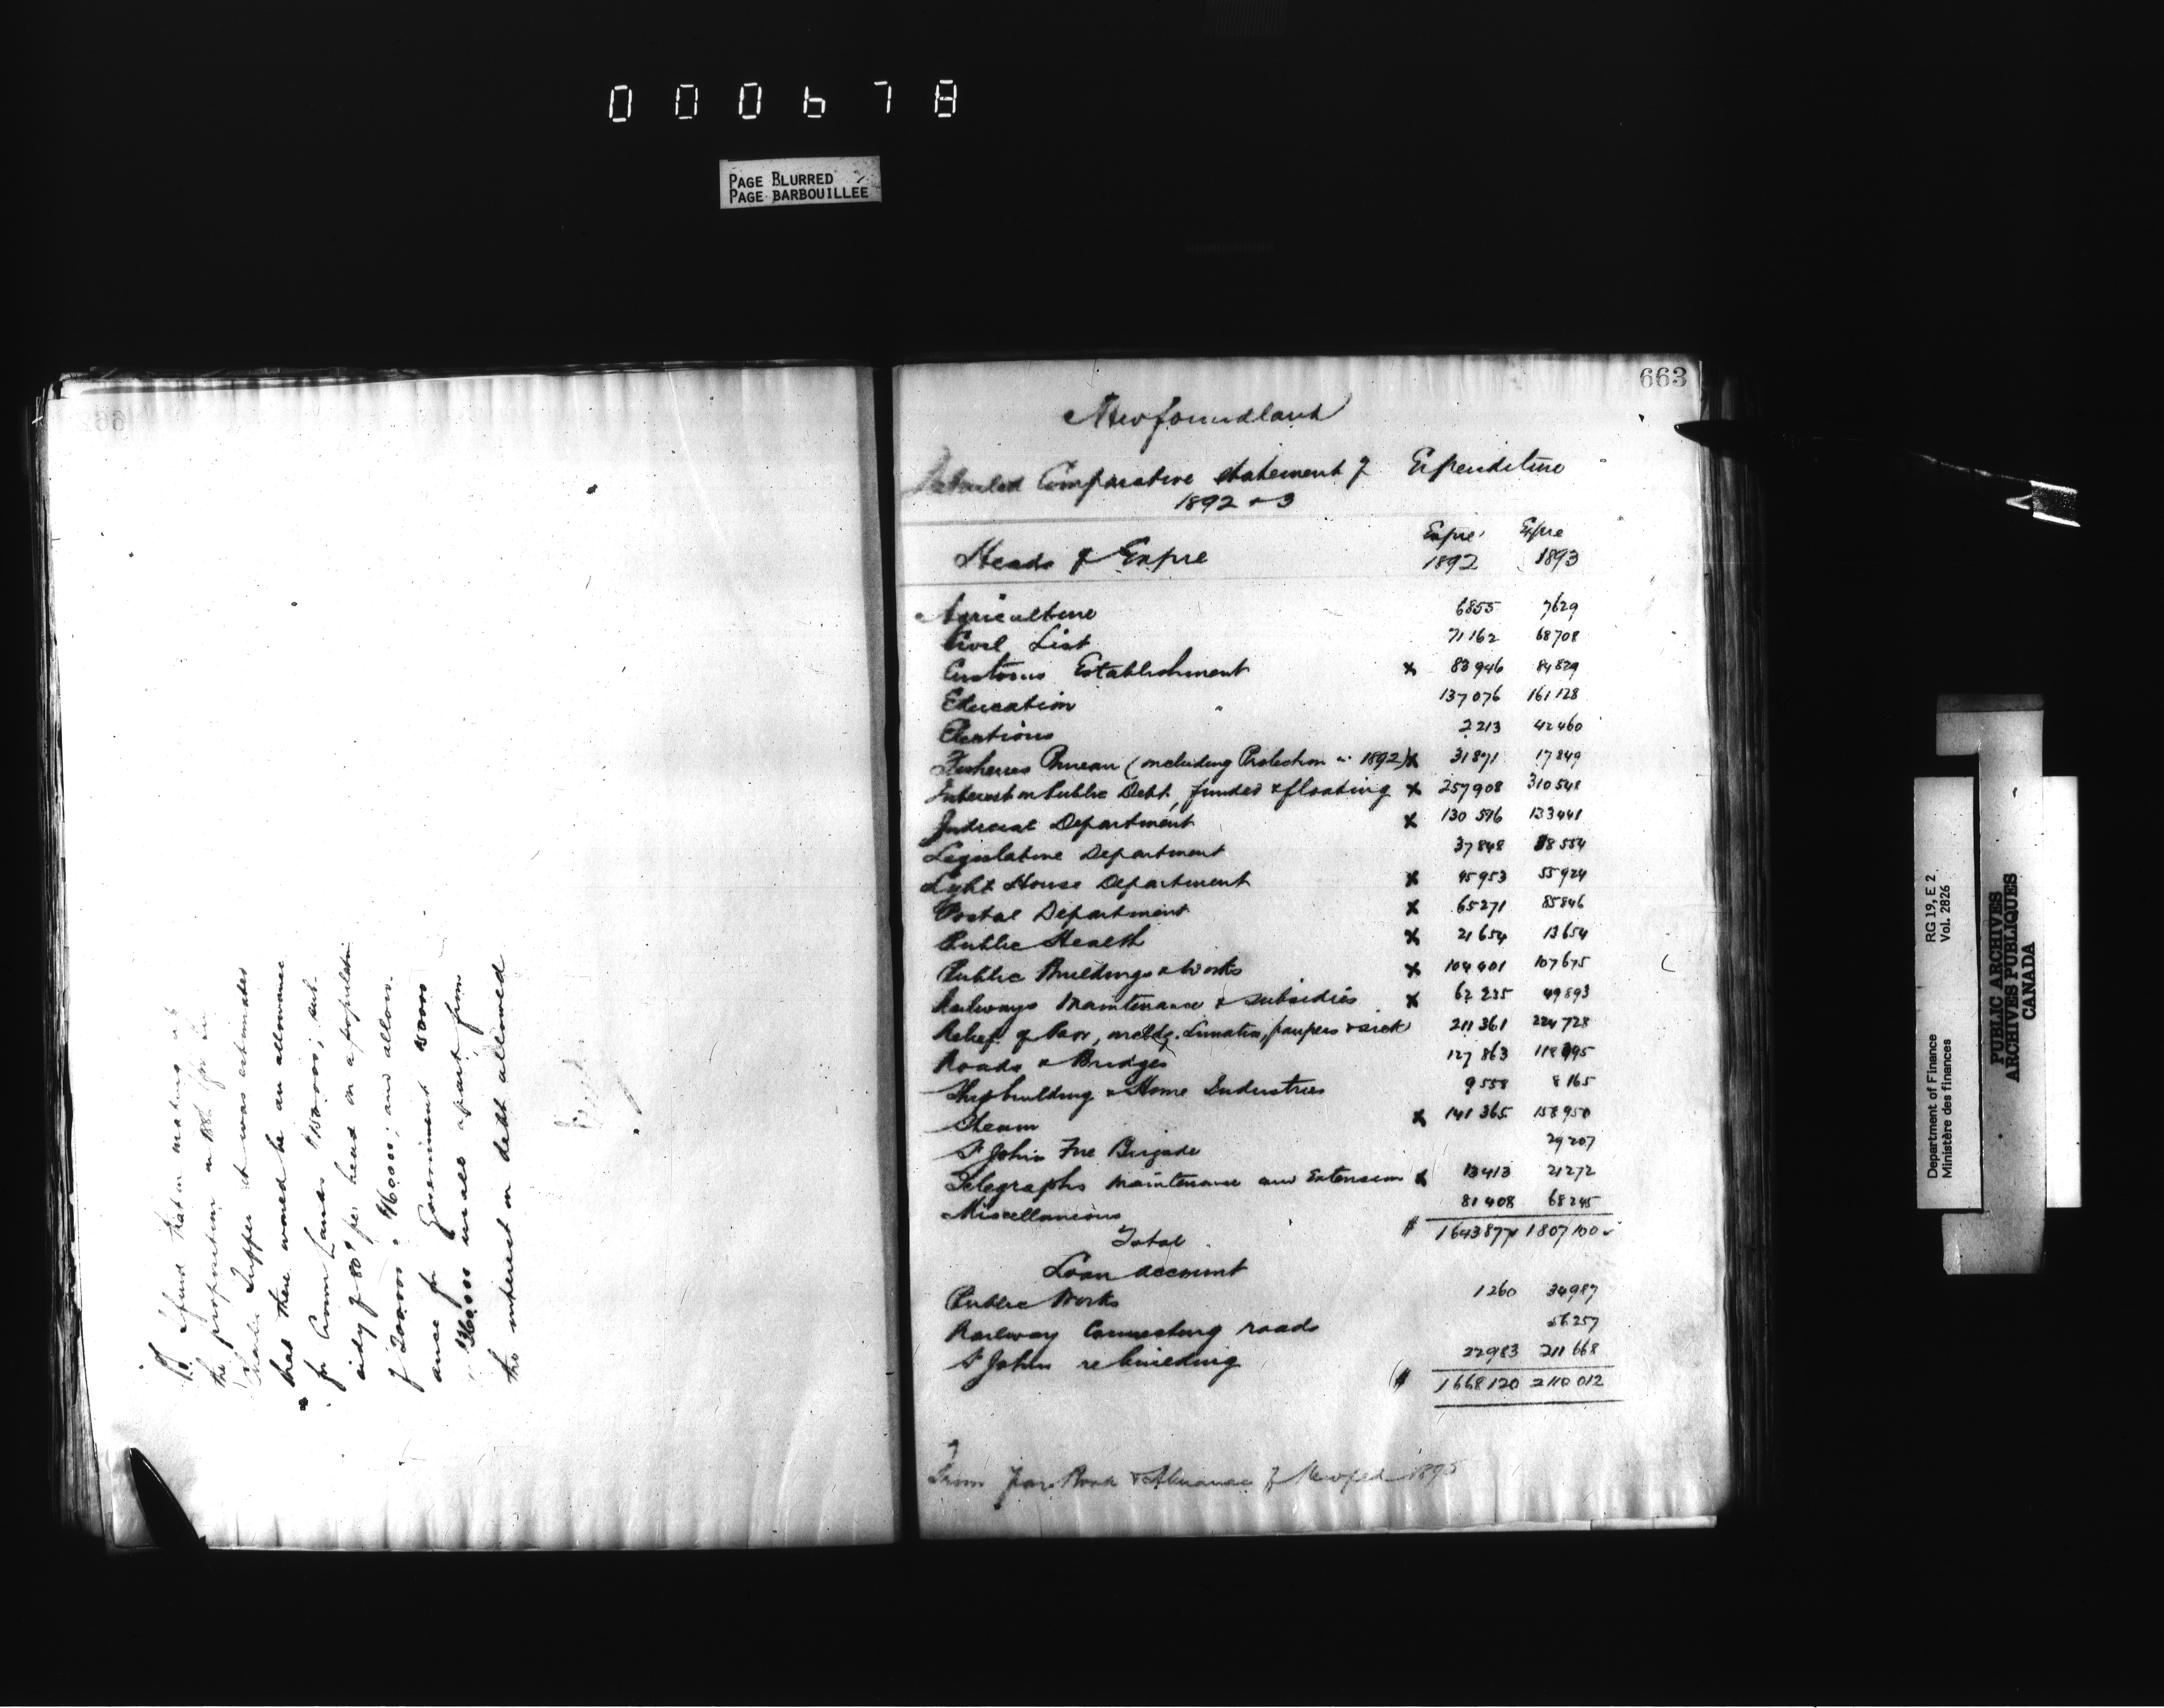 000678
PAGE BLURRED
PAGE BARBOUILLEE
P.S. I find that in making up
the proposition in 1888 for
Charles Tupper it was estimated
that there would be an allowance
for Crown Lands $150000; sub-
sidy of 80¢ per head on a population
of 200000 = $160000; and allow-
ance for Government 50000
$360000 in all apart from
the interest on debt allowed
663
Newfoundland
Detailed Comparative statement of Expenditure
1892 & 3
Heads of Expre Expre 1892 Expre 1893
Agriculture 6855 7629
Civil List 71162 68708
Customs Establishment x 83946 84829
Education 137076 161128
Elections 2213 42460
Fisheries Bureau (including Protection in 1892) x 31871 17849
Interest on Public Debt, funded & floating x 257908 310548
Judicial Department x 130596 133441
Legislative Department 37848 38554
Light House Department x 45953 55924
Postal Department x 65271 85846
Public Health x 21654 13654
Public Buildings & Works x 104401 107675
Railways Maintenance & subsidies x 62235 49893
Relief of Poor, incldg. Lunatics, paupers & sick 211361 224728
Roads & Bridges 127863 118395
Shipbuilding & Home Industries 9558 8165
Steam x 141365 158950
St Johns Fire Brigade 29207
Telegraphs maintenance and Extension x 13413 21272
Miscellaneous 81408 68245
Total $ 1643877 1807100
Loan account
Public Works 1260 34987
Railway Connecting roads 56257
St Johns rebuilding 22983 211668
$ 1668120 2110012
From Year Book & Almanac of Newfld 1895
Department of Finance RG 19, E 2
Ministère des finances Vol. 2826
PUBLIC ARCHIVES
ARCHIVES PUBLIQUES
CANADA